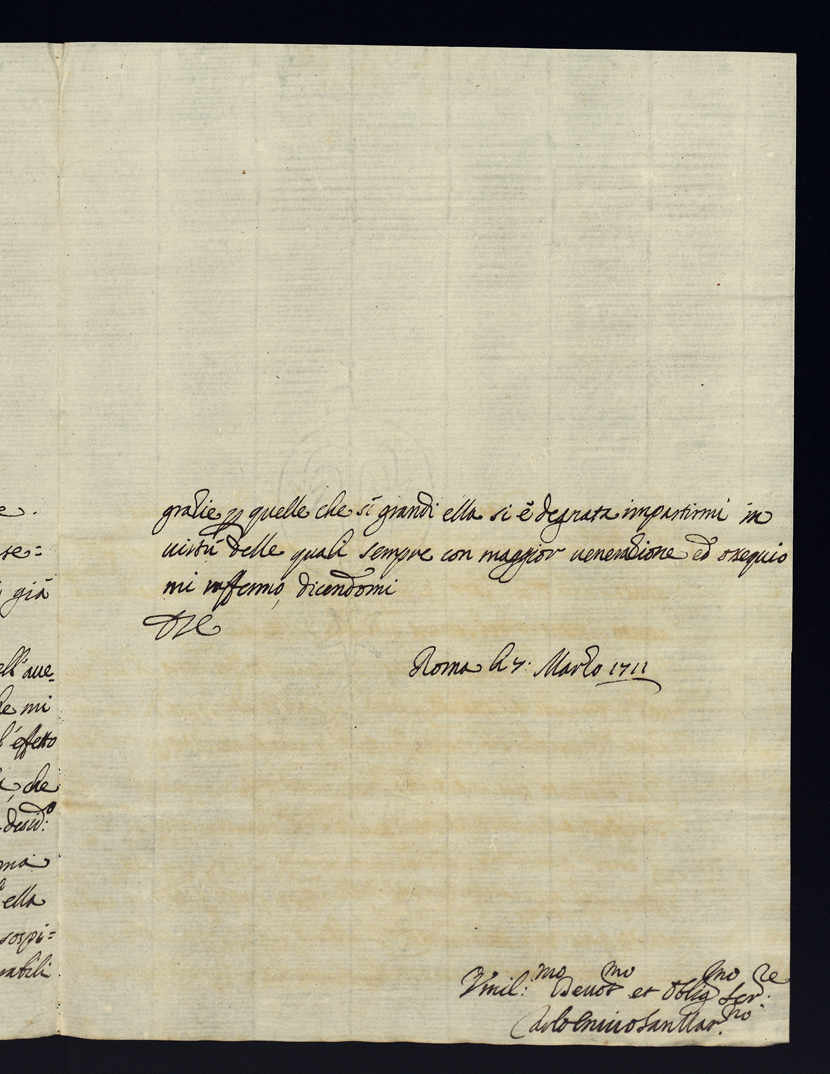 e.
se=
già
ell'aue=
he mi
l'effetto
che
desid:º
ma
ella
sospi=
abili.
gratie p quelle che sì grandi ella si è degnata impartirmi in
uirtù delle quali sempre con maggior ueneratione ed ossequio
mi raffermo, dicendomi
Roma li 7. Marzo 1711
Vmil:mo Deuot.mo et Oblig.mo Ser.re
Carlo Enrico San Mar.no